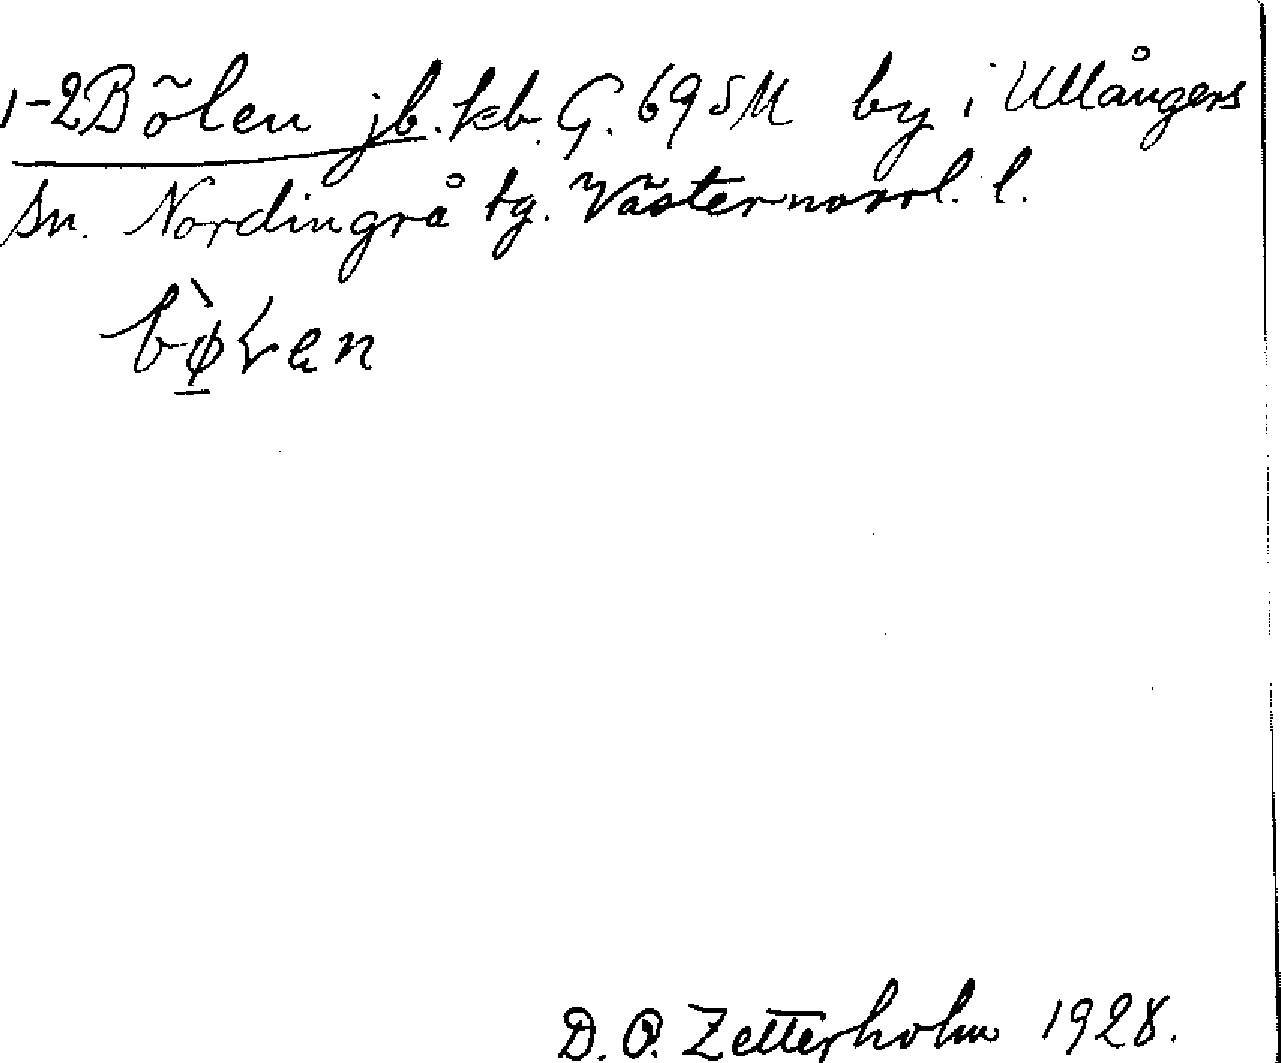 1-2 Bölen jb. kb. G. 69 SM by i Ullångers
sn. Nordingrå tg. Västernorrl. l.
D. O. Zetterholm 1928.